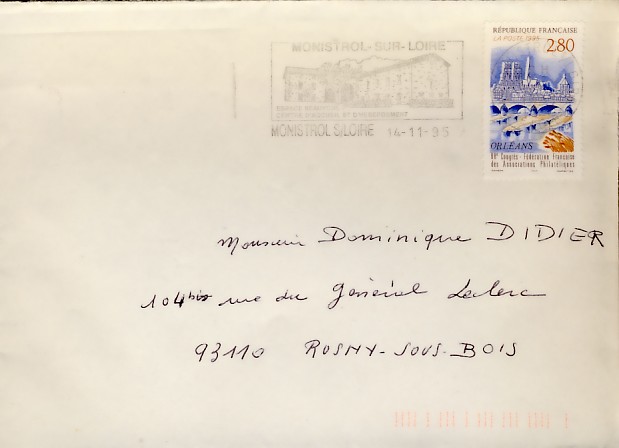 RÉPUBLIQUE FRANÇAISE
LA POSTE 1995
2,80
MONISTROL-SUR-LOIRE
MONISTROL S/LOIRE 14-11-95
ORLÉANS
68e Congrès - Fédération Française
des Associations Philatéliques
Monsieur Dominique DIDIER
104 bis rue du Général Leclerc
93110 ROSNY-SOUS-BOIS